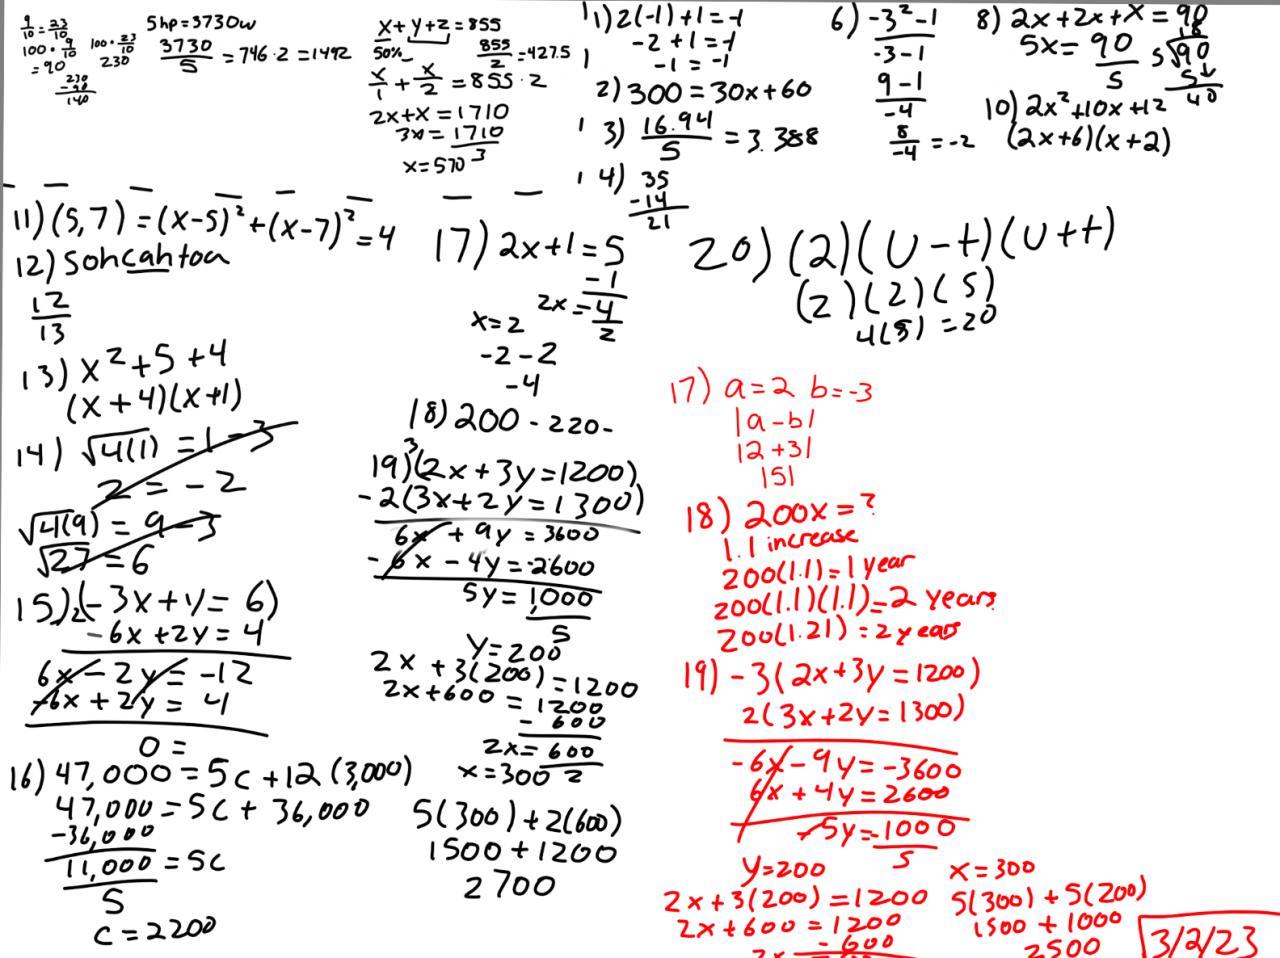 9/10 = 23/10
100 · 9/10
= 90
100 · 23/10
230
230
- 90
140
5hp = 3730w
3730/5 = 746 · 2 = 1492
x + y + z = 855
50%
855/2 = 427.5
x/1 + x/2 = 855 · 2
2x + x = 1710
3x = 1710/3
x = 570
1) 2(-1) + 1 = -1
-2 + 1 = -1
-1 = -1
2) 300 = 30x + 60
3) 16.94/5 = 3.388
4) 35
-14
21
6) -3² - 1
-3 - 1
9 - 1
-4
8/-4 = -2
8) 2x + 2x + x = 90
5x = 90/5
18
5√90
5↓
40
10) 2x² + 10x + 12
(2x + 6)(x + 2)
11) (5,7) = (x-5)² + (x-7)² = 4
12) Sohcahtoa
12/13
13) x² + 5 + 4
(x + 4)(x + 1)
14) √4(1) = 1 - 3
2 = -2
√4(9) = 9 - 3
√27 = 6
15) 2(-3x + y = 6)
-6x + 2y = 4
6x - 2y = -12
-6x + 2y = 4
0 =
16) 47,000 = 5c + 12(3,000)
47,000 = 5c + 36,000
-36,000
11,000/5 = 5c
c = 2200
17) 2x + 1 = 5
-1
2x = 4/2
x = 2
-2 - 2
-4
18) 200 - 220 -
19) 3(2x + 3y = 1200)
-2(3x + 2y = 1300)
6x + 9y = 3600
-6x - 4y = -2600
5y = 1,000/5
y = 200
2x + 3(200) = 1200
2x + 600 = 1200
- 600
2x = 600/2
x = 300
5(300) + 2(600)
1500 + 1200
2700
20) (2)(u - t)(u + t)
(2)(2)(5)
4(5) = 20
17) a = 2 b = -3
|a - b|
|2 + 3|
|5|
18) 200x = ?
1.1 increase
200(1.1) = 1 year
200(1.1)(1.1) = 2 years
200(1.21) = 2 years
19) -3(2x + 3y = 1200)
2(3x + 2y = 1300)
-6x - 9y = -3600
6x + 4y = 2600
-5y = -1000/5
y = 200
2x + 3(200) = 1200
2x + 600 = 1200
- 600
x = 300
5(300) + 5(200)
1500 + 1000
2500
3/2/23